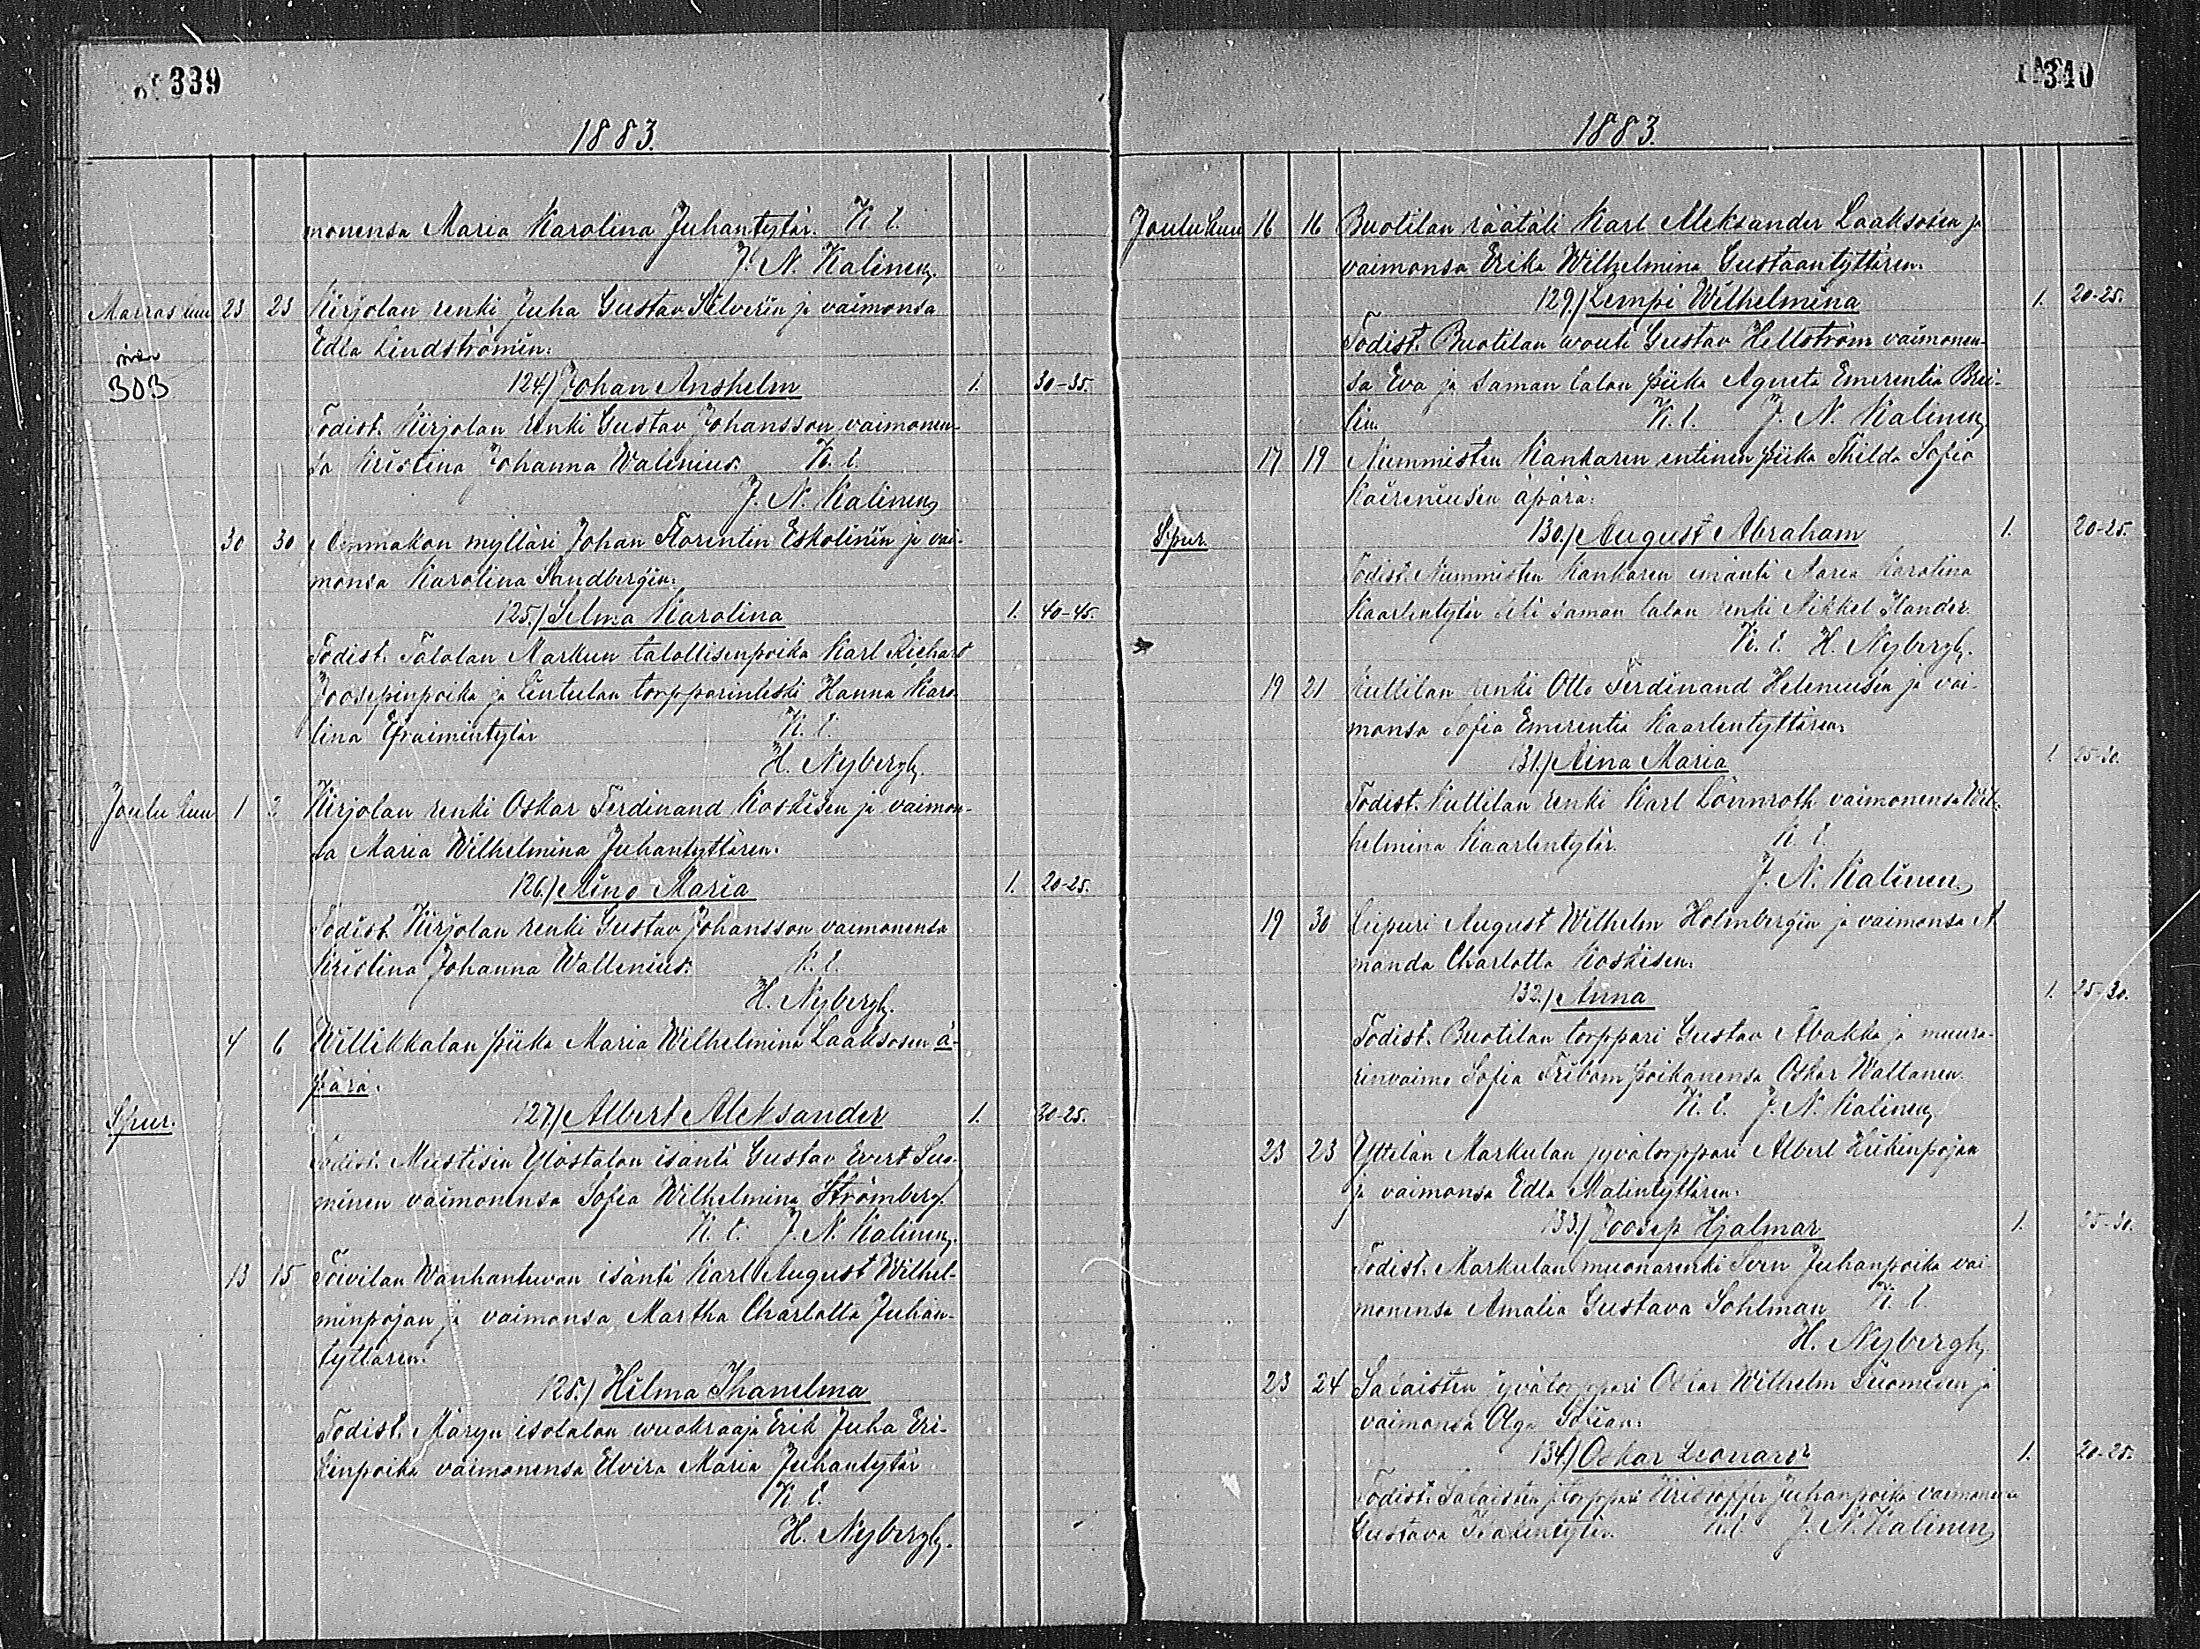 339
1883.
monensa Maria Karolina Juhantytär. K. l.
J. N. Kalinen
Marraskuu 23 23 Kirjolan renki Juha Gustav Silverin ja vaimonsa
Edla Lindströmin:
303
124.) Johan Anshelm 1. 30-35.
Todist. Kirjolan renki Gustav Johansson vaimonen-
sa Kristina Johanna Walenius. K. l.
J. N. Kalinen
30 30 mylläri Johan Florentin Eskolinin ja vai-
monsa Karolina Sandbergin:
125.) Selma Karolina 1. 40-45.
Todist. Talolan Markun talollisenpoika Karl Richard
Joosepinpoika ja Lintulan torpparinleski Hanna Karo-
lina Efraimintytär K. l.
H. Nybergh.
Joulukuu 1 2 Kirjolan renki Oskar Ferdinand Koskisen ja vaimon-
sa Maria Wilhelmina Juhantyttären.
126.) Aino Maria 1. 20-25.
Todist. Kirjolan renki Gustav Johansson vaimonensa
Kristina Johanna Wallenius. K. l.
H. Nybergh.
4 6 Willikkalan piika Maria Wilhelmina Laaksosen ä-
pärä.
Spur. 127.) Albert Aleksander 1. 20-25.
Todist. Mustisin Ylöstalon isäntä Gustav Evert Suo-
minen vaimonensa Sofia Wilhelmina Strömberg.
K. l. J. N. Kalinen.
13 15 Toivilan Wanhantuvan isäntä Karl August Wilhel-
minpojan ja vaimonsa Martha Charlotta Juhan-
tyttären.
128.) Hilma
Todist. Maryn isotalon wuokraaja Erik Juha Eri-
kinpoika vaimonensa Elvira Maria Juhantytär
K. l.
H. Nybergh.
340
1883.
Joulukuu 16 16 Buotilan räätäli Karl Aleksander Laaksosen ja
vaimonsa Erika Wilhelmina Gustaantyttären.
129.) Lempi Wilhelmina 1. 20-25.
Todist. Buotilan wouti Gustav Hellström vaimonen-
sa Eva ja saman talon piika Agneta Emerentia
lin. K. l. J. N. Kalinen
17 19 Nummisten Kankaren entinen piika Thilda Sofia
Kaireniusen äpärä:
Spur. 130.) August Abraham 1. 20-25.
Todist. Nummisten Kankaren emäntä Maria Karolina
Kaarlentytär saman talon renki Mikkel
K. l. H. Nybergh.
19 21 Kuttilan renki Otto Ferdinand Heleniusen ja vai-
monsa Sofia Emerentia Kaarlentyttären.
131.) Aina Maria 1. 25-30.
Todist. Kuttilan renki Karl Lönnroth vaimonensa Wil-
helmina Kaarlentytär. K. l.
J. N. Kalinen.
19 30 August Wilhelm Holmbergin ja vaimonsa A
manda Charlotta Koskisen.
132.) Anna 1. 25-30.
Todist. Buotilan torppari Gustav Abakka ja muura-
rinvaimo Sofia poikanensa Oskar Waltanen.
K. l. J. N. Kalinen
23 23 Yttilän Markulan jyvätorppari Albert Heikinpojan
ja vaimonsa Edla Malintyttären.
133.) Joosep Hjalmar 1. 25-30.
Todist. Markulan muonarenki Sven Juhanpoika vai-
monensa Amalia Gustava Sohlman K. l.
H. Nybergh,
23 24 Salaisten jyvätorppari Oskar Wilhelm Suomisen ja
vaimonsa Olga
134.) Oskar Leonard 1. 20-25.
Todist. Salaisten torppari Juhanpoika vaimonensa
Gustava K. l. J. N. Kalinen